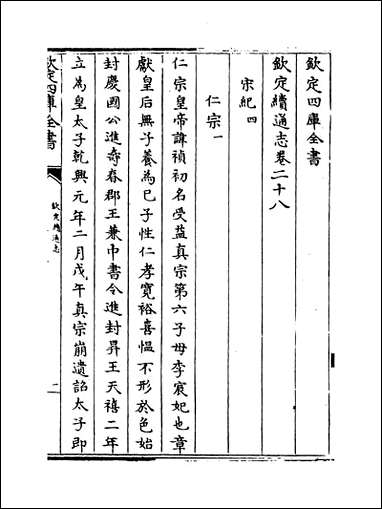 欽定四庫全書
欽定續通志卷二十八
宋紀四
仁宗一
仁宗皇帝諱禎初名受益真宗第六子母李宸妃也章
獻皇后無子養為已子性仁孝寛裕喜愠不形於色始
封慶國公進壽春郡王兼中書令進封昇王天禧二年
立為皇太子乾興元年二月戊午真宗崩遺詔太子即
欽定四庫全書
欽定續通志